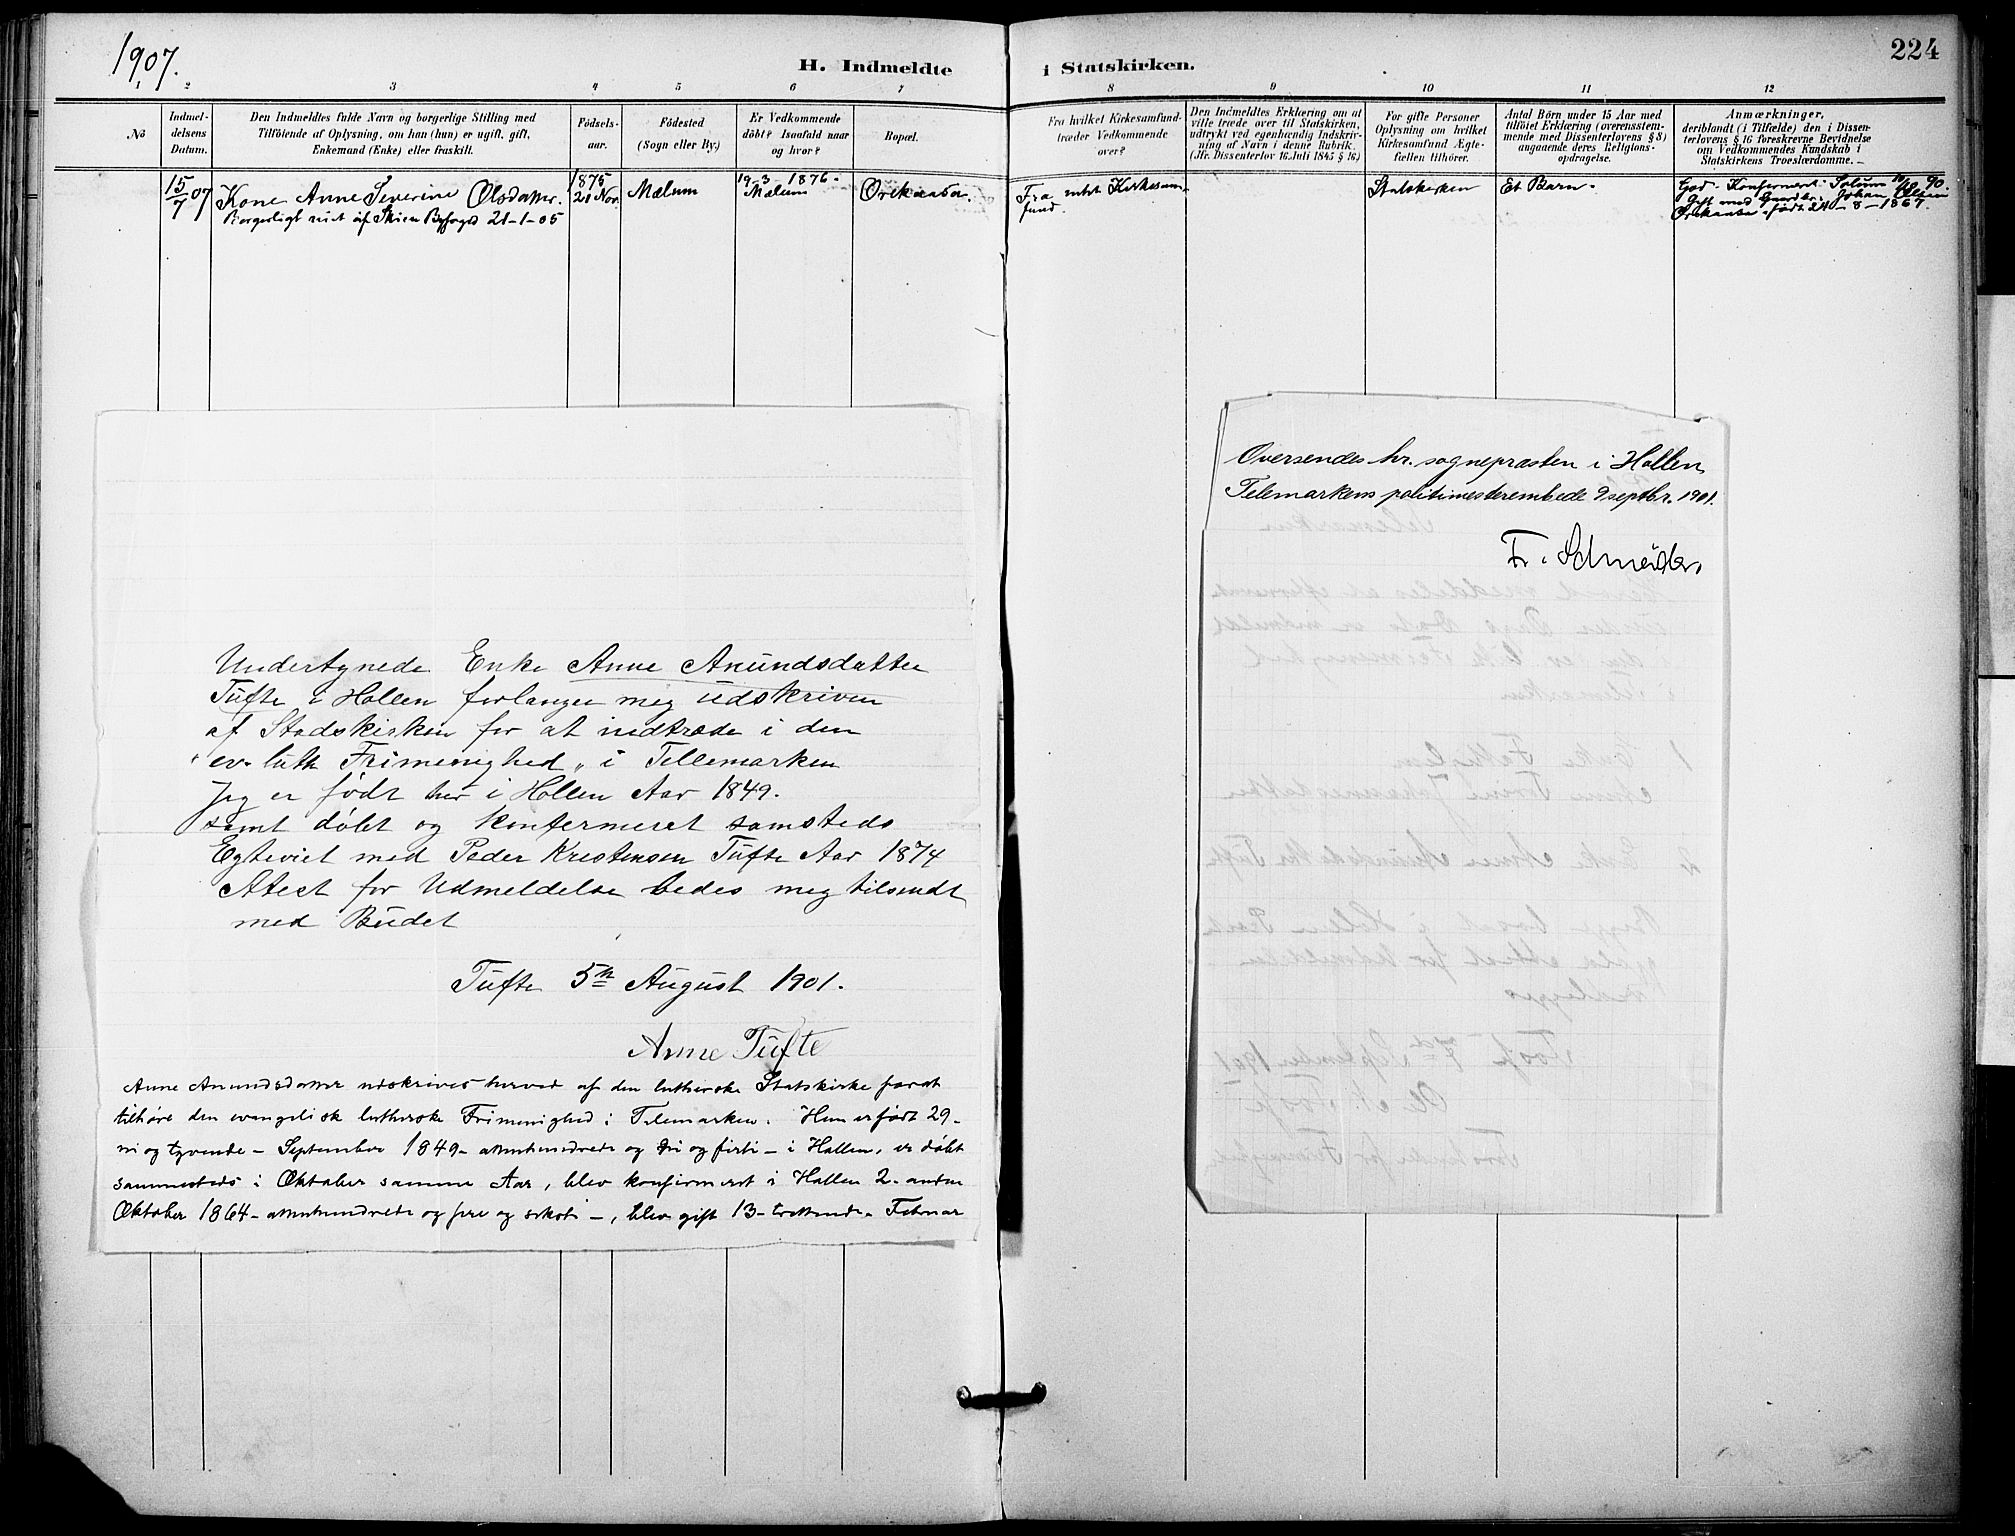 1907.
H. Indmeldte i Statskirken.
224
1 2 3 4 5 6 7 8 9 10 11 12
No
Indmel-
delsens
Datum.
Den Indmeldtes fulde Navn og borgerlige Stilling med
Tilföiende af Oplysning, om han (hun) er ugift, gift,
Enkemand (Enke) eller fraskilt.
Födsels-
aar.
Födested
(Sogn eller By.)
Er Vedkommende
döbt? Isaafald naar
og hvor?
Bopæl.
Fra hvilket Kirkesamfund
træder Vedkommende
over?
Den Indmeldtes Erklæring om at
ville træde over til Statskirken,
udtrykt ved egenhændig Indskriv-
ning af Navn i denne Rubrik.
(Jfr. Dissenterlov 16. Juli 1845 § 16)
For gifte Personer
Oplysning om hvilket
Kirkesamfund Ægte-
fællen tilhörer.
Antal Börn under 15 Aar med
tilföiet Erklæring (overensstem-
mende med Dissenterlovens § 8)
angaaende deres Religions-
opdragelse.
Anmærkninger,
deriblandt (i Tilfælde) den i Dissen-
terlovens § 16 foreskrevne Bevidnelse
om Vedkommendes Kundskab i
Statskirkens Troeslærdomme.
15/7 07
Kone Anne Severine Olsdatter.
Borgerligt viet af Skien Byfoged 21-1-05
1875
20 Nov.
Mælum
19-3-1876-
Mælum
Fra intet Kirkesam-
fund.
Statskirken
Et Barn-
God. Konfirmert. Solum 90.
Gift med Gaardbr. Johan
født 24-8-1867.
Undertegnede Enke Anne Anundsdatter
Tufte i Hollen forlanger meg udskriven
af Stadskirken for at indtræde i den
"ev. luth Frimenighed" i Tellemarken
Jeg er født her i Hollen Aar 1849.
samt döbt og konfermeret samsteds
Egteviet med Peder Kristensen Tufte Aar 1874
Atest for Udmeldelse bedes meg tilsendt
med Budet
Tufte 5te August 1901.
Anne Tufte
Anne Anundsdatter udskrives herved af den lutherske Statskirke for at
tilhøre den evangelisk lutherske Frimenighed i Telemarken. Hun er født 29-
ni og tyvende - September 1849- attenhundrede og ni og firti - i Hollen, er døbt
sammesteds i Oktober samme Aar, blev konfirmert i Hollen 2- anden
Oktober 1864- attenhundrede og fire og seksti -, blev gift 13- trettende- Februar
Oversendes hr. sognepræsten i Hollen,
Telemarkens politimesterembede 9 septbr. 1901.